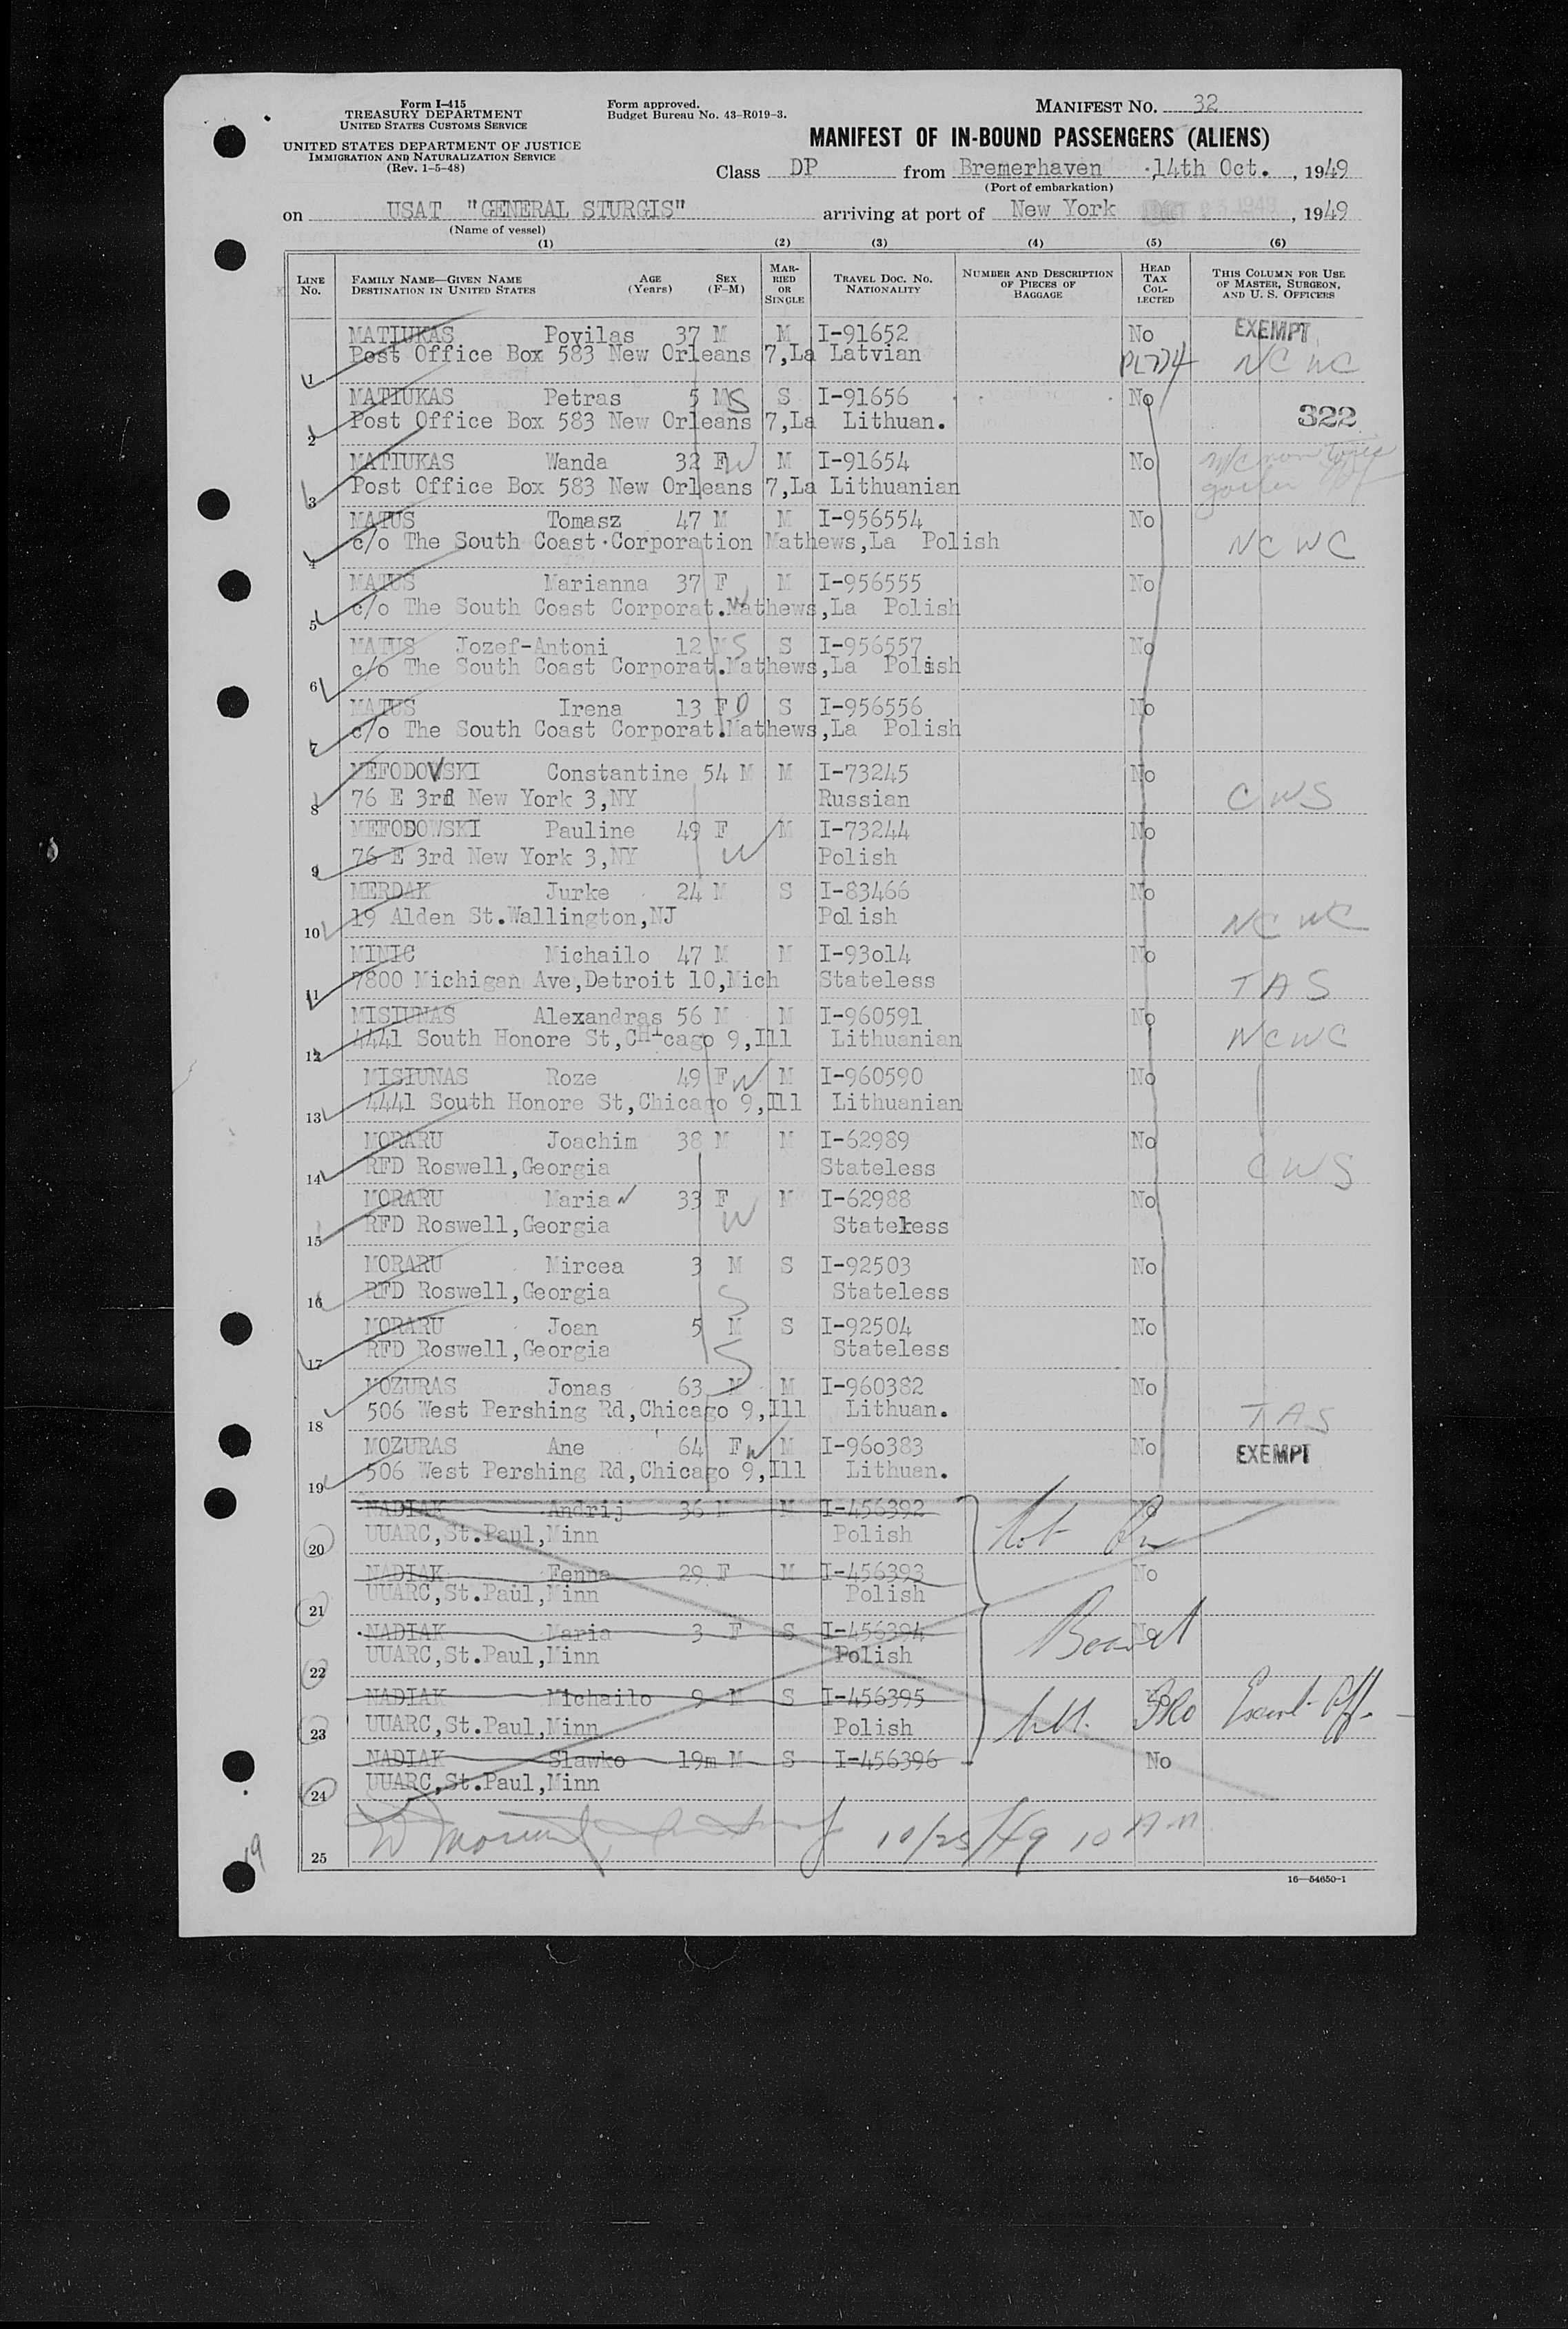 Form I-415
TREASURY DEPARTMENT
UNITED STATES CUSTOMS SERVICE
UNITED STATES DEPARTMENT OF JUSTICE
IMMIGRATION AND NATURALIZATION SERVICE
(Rev. 1-5-48)
Form approved.
Budget Bureau No. 43-R019-3.
MANIFEST NO. 32
MANIFEST OF IN-BOUND PASSENGERS (ALIENS)
Class DP from Bremerhaven 14th Oct., 1949
(Port of embarkation)
on USAT "GENERAL STURGIS" arriving at port of New York , 1949
(Name of vessel)
(1) (2) (3) (4) (5) (6)
LINE NO. FAMILY NAME—GIVEN NAME DESTINATION IN UNITED STATES AGE (Years) SEX (F-M) MARRIED OR SINGLE TRAVEL DOC. NO. NATIONALITY NUMBER AND DESCRIPTION OF PIECES OF BAGGAGE HEAD TAX COLLECTED THIS COLUMN FOR USE OF MASTER, SURGEON, AND U. S. OFFICERS
MATIUKAS Povilas 37 M M I-91652 No EXEMPT
1 Post Office Box 583 New Orleans 7,La Latvian NCWC
MATIUKAS Petras 5 M S S I-91656 No
2 Post Office Box 583 New Orleans 7,La Lithuan. 322
MATIUKAS Wanda 32 F W M I-91654 No
3 Post Office Box 583 New Orleans 7,La Lithuanian
MATUS Tomasz 47 M M I-956554 No
4 c/o The South Coast Corporation Mathews,La Polish NCWC
MATUS Marianna 37 F W M I-956555 No
5 c/o The South Coast Corporat.Mathews,La Polish
MATUS Jozef-Antoni 12 M S S I-956557 No
6 c/o The South Coast Corporat.Mathews,La Polish
MATUS Irena 13 F D S I-956556 No
7 c/o The South Coast Corporat.Mathews,La Polish
MEFODOVSKI Constantine 54 M M I-73245 No
8 76 E 3rd New York 3,NY Russian CWS
MEFODOWSKI Pauline 49 F W M I-73244 No
9 76 E 3rd New York 3,NY Polish
MERDAK Jurke 24 M S I-83466 No
10 19 Alden St.Wallington,NJ Polish NCWC
MINIC Michailo 47 M M I-93o14 No
11 7800 Michigan Ave,Detroit 10,Mich Stateless TAS
MISIUNAS Alexandras 56 M M I-960591 No
12 4441 South Honore St,CHicago 9,Ill Lithuanian NCWC
MISIUNAS Roze 49 F W M I-960590 No
13 4441 South Honore St,Chicago 9,Ill Lithuanian
MORARU Joachim 38 M M I-62989 No
14 RFD Roswell,Georgia Stateless CWS
MORARU Maria 33 F W M I-62988 No
15 RFD Roswell,Georgia Stateless
MORARU Mircea 3 M S I-92503 No
16 RFD Roswell,Georgia S Stateless
MORARU Joan 5 M S I-92504 No
17 RFD Roswell,Georgia S Stateless
MOZURAS Jonas 63 M M I-960382 No
18 506 West Pershing Rd,Chicago 9,Ill Lithuan. TAS
MOZURAS Ane 64 F W M I-96o383 No EXEMPT
19 506 West Pershing Rd,Chicago 9,Ill Lithuan.
NADIAK Andrij 36 M M I-456392
20 UUARC,St.Paul,Minn Polish Not On
NADIAK Fenna 29 F M I-456393 No
21 UUARC,St.Paul,Minn Polish
NADIAK Maria 3 F S I-456394 No Board
22 UUARC,St.Paul,Minn Polish
NADIAK Michailo 9 M S I-456395 No
23 UUARC,St.Paul,Minn Polish
NADIAK Slawko 19m M S I-456396 No
24 UUARC,St.Paul,Minn
25 10/23/49 10 AM
16—54650-1
19